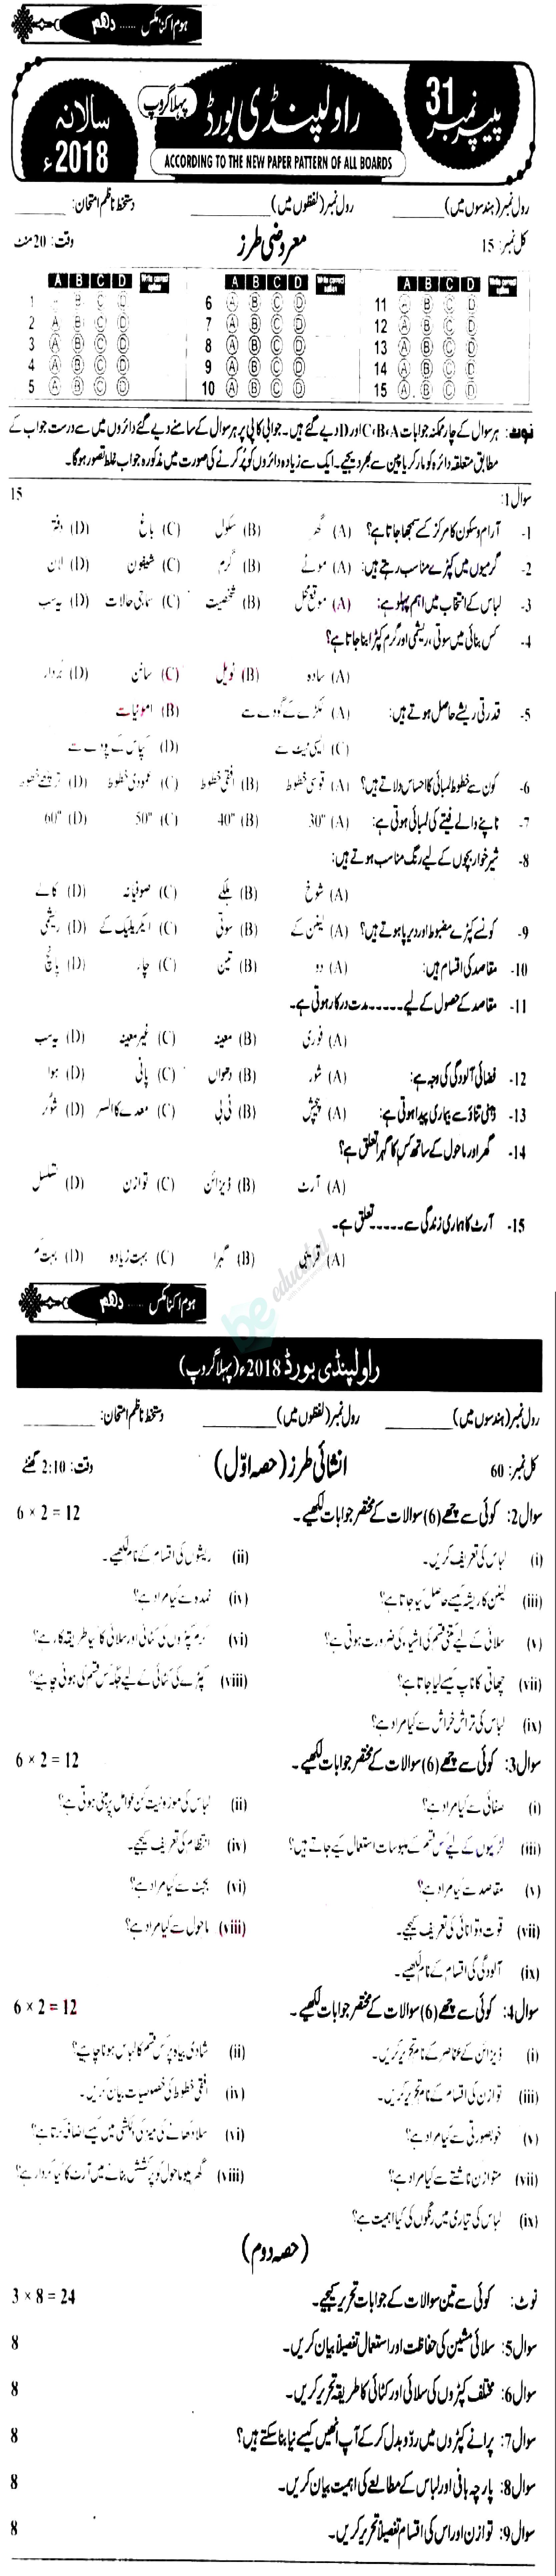 ہوم اکنامکس ...... دہم
پیپر نمبر 31
راولپنڈی بورڈ
پہلا گروپ
سالانہ 2018ء
ACCORDING TO THE NEW PAPER PATTERN OF ALL BOARDS
رول نمبر (ہندسوں میں) ________ رول نمبر (لفظوں میں) ________ دستخط ناظم امتحان: ________
کل نمبر: 15 معروضی طرز وقت: 20 منٹ
A B C D Write correct option A B C D Write correct option A B C D Write correct option
1 A B C D 6 A B C D 11 A B C D
2 A B C D 7 A B C D 12 A B C D
3 A B C D 8 A B C D 13 A B C D
4 A B C D 9 A B C D 14 A B C D
5 A B C D 10 A B C D 15 A B C D
نوٹ: ہر سوال کے چار ممکنہ جوابات C، B، A اور D دیے گئے ہیں۔ جوابی کاپی پر ہر سوال کے سامنے دیے گئے دائروں میں سے درست جواب کے
مطابق متعلقہ دائرہ کو مارکر یا پین سے بھر دیجیے۔ ایک سے زیادہ دائروں کو پُر کرنے کی صورت میں مذکورہ جواب غلط تصور ہوگا۔
سوال 1: 15
1- آرام و سکون کا مرکز کسے سمجھا جاتا ہے؟ (A) گھر (B) سکول (C) باغ (D) دفتر
2- گرمیوں میں کپڑے مناسب رہتے ہیں: (A) موٹے (B) گرم (C) شیفون (D) لان
3- لباس کے انتخاب میں اہم پہلو ہے: (A) موقع محل (B) شخصیت (C) سماجی حالات (D) یہ سب
4- کس بنائی میں سوتی، ریشمی اور گرم کپڑا بنا جاتا ہے؟
(A) سادہ (B) ٹویل (C) ساٹن (D) بُردار
5- قدرتی ریشے حاصل ہوتے ہیں: (A) لکڑے کے گودے سے (B) امونیا سے
(C) ایسی ٹیٹ سے (D) کپاس کے پودے سے
6- کون سے خطوط لمبائی کا احساس دلاتے ہیں؟ (A) قوسی خطوط (B) افقی خطوط (C) عمودی خطوط (D) ترچھے خطوط
7- ناپنے والے فیتے کی لمبائی ہوتی ہے: (A) 30" (B) 40" (C) 50" (D) 60"
8- شیر خوار بچوں کے لیے رنگ مناسب ہوتے ہیں:
(A) شوخ (B) ہلکے (C) صوفیانہ (D) کالے
9- کونسے کپڑے مضبوط اور دیرپا ہوتے ہیں؟ (A) لینن کے (B) سوتی (C) ایکریلیک کے (D) ریشمی
10- مقاصد کی اقسام ہیں: (A) دو (B) تین (C) چار (D) پانچ
11- مقاصد کے حصول کے لیے ۔۔۔۔۔ مدت درکار ہوتی ہے۔
(A) فوری (B) معینہ (C) غیر معینہ (D) یہ سب
12- فضائی آلودگی کی وجہ ہے: (A) شور (B) دھواں (C) پانی (D) ہوا
13- ذہنی تناؤ سے بیماری پیدا ہوتی ہے: (A) پیچش (B) ٹی بی (C) معدے کا السر (D) شوگر
14- گھر اور ماحول کے ساتھ کس کا گہرا تعلق ہے؟
(A) آرٹ (B) ڈیزائن (C) توازن (D) تسلسل
15- آرٹ کا ہماری زندگی سے ۔۔۔۔۔ تعلق ہے۔
(A) قریبی (B) گہرا (C) بہت زیادہ (D) بہت کم
be educated
ہوم اکنامکس ...... دہم
راولپنڈی بورڈ 2018ء (پہلا گروپ)
رول نمبر (ہندسوں میں) ________ رول نمبر (لفظوں میں) ________ دستخط ناظم امتحان: ________
کل نمبر: 60 انشائی طرز (حصہ اوّل) وقت: 2:10 گھنٹے
سوال 2: کوئی سے چھے (6) سوالات کے مختصر جوابات لکھیے۔ 6 × 2 = 12
(i) لباس کی تعریف کریں۔ (ii) ریشوں کی اقسام کے نام لکھیے۔
(iii) لینن کا ریشہ کیسے حاصل کیا جاتا ہے؟ (iv) نمدہ سے کیا مراد ہے؟
(v) سلائی کے لیے کتنی قسم کی اشیاء کی ضرورت ہوتی ہے؟ (vi) گرم کپڑوں کی کٹائی اور سلائی کا کیا طریقہ کار ہے؟
(vii) چھاتی کا ناپ کیسے لیا جاتا ہے؟ (viii) کپڑے کی کٹائی کے لیے جگہ کس قسم کی ہونی چاہیے؟
(ix) لباس کی تراش خراش سے کیا مراد ہے؟
سوال 3: کوئی سے چھے (6) سوالات کے مختصر جوابات لکھیے۔ 6 × 2 = 12
(i) صفائی سے کیا مراد ہے؟ (ii) لباس کی موزونیت کن عوامل پر مبنی ہوتی ہے؟
(iii) لڑکیوں کے لیے کس قسم کے ملبوسات استعمال کیے جاتے ہیں؟ (iv) انتظام کی تعریف کیجیے۔
(v) مقاصد سے کیا مراد ہے؟ (vi) بجٹ سے کیا مراد ہے؟
(vii) قوت و توانائی کی تعریف کیجیے۔ (viii) ماحول سے کیا مراد ہے؟
(ix) آلودگی کی اقسام کے نام لکھیے۔
سوال 4: کوئی سے چھے (6) سوالات کے مختصر جوابات لکھیے۔ 6 × 2 = 12
(i) ڈیزائن کے عناصر کے نام تحریر کریں۔ (ii) شادی بیاہ پر کس قسم کا لباس ہونا چاہیے؟
(iii) توازن کی اقسام کے نام تحریر کریں۔ (iv) افقی خطوط کی خصوصیات بیان کریں۔
(v) خوبصورتی سے کیا مراد ہے؟ (vi) سلاد کھانے کی میز کی دلکشی میں کیسے اضافہ کرتا ہے؟
(vii) متوازن ناشتے سے کیا مراد ہے؟ (viii) گھریلو ماحول کو پرکشش بنانے میں آرٹ کا کیا کردار ہے؟
(ix) لباس کی تیاری میں رنگوں کی کیا اہمیت ہے؟
(حصہ دوم)
نوٹ: کوئی سے تین سوالات کے جوابات تحریر کیجیے۔ 3 × 8 = 24
سوال 5: سلائی مشین کی حفاظت اور استعمال تفصیلاً بیان کریں۔ 8
سوال 6: مختلف کپڑوں کی سلائی اور کٹائی کا طریقہ تحریر کریں۔ 8
سوال 7: پرانے کپڑوں میں ردّ و بدل کر کے آپ انھیں کیسے نیا بنا سکتے ہیں؟ 8
سوال 8: پارچہ بافی اور لباس کے مطالعے کی اہمیت بیان کریں۔ 8
سوال 9: توازن اور اس کی اقسام تفصیلاً تحریر کریں۔ 8